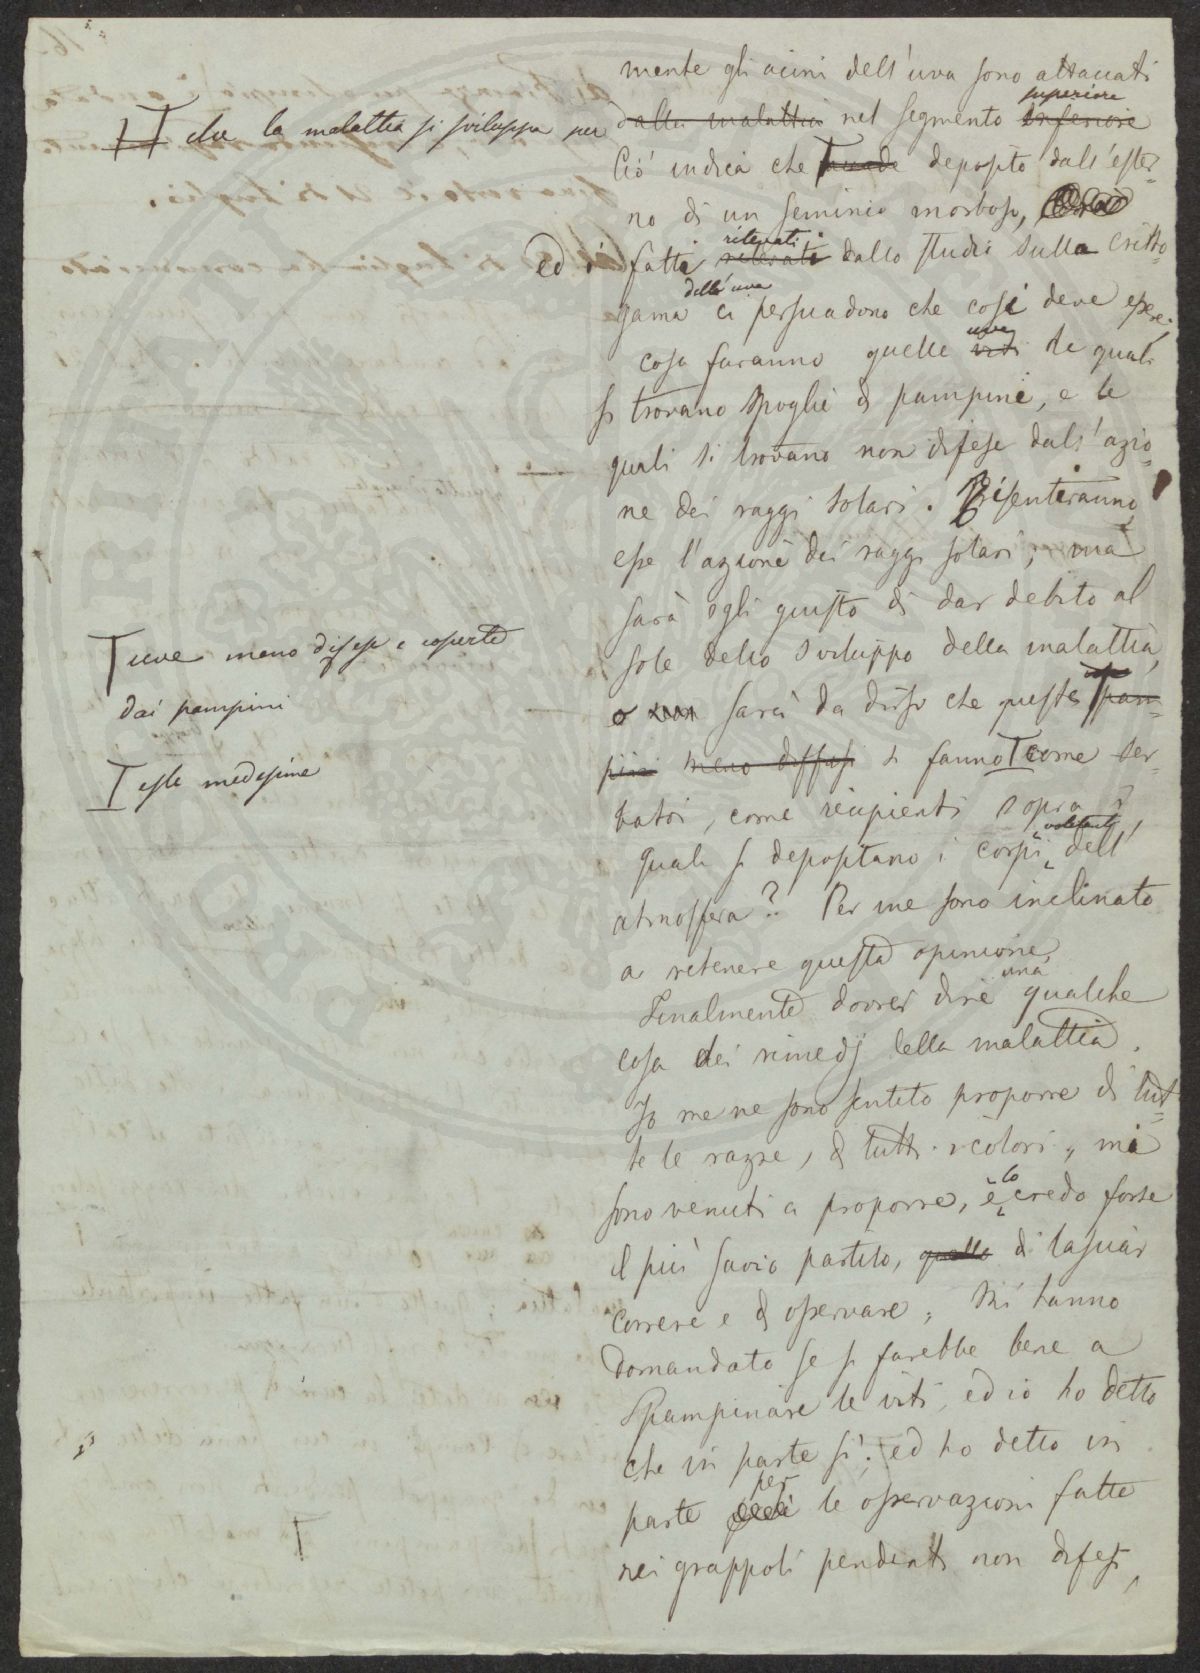 mente gli acini dell'uva sono attaccati
dalla malattia nel segmento inferiore superiore
che la malattia si sviluppa per
Ciò indica che deposito dall'ester-
no di un seminio morboso,
ed i fatti rilevati ritenuti dallo studio sulla critto-
gama dell'uva ci persuadono che così deve essere;
cosa faranno quelle viti uve le quali
si trovano spoglie di pampini, e le
quali si trovano non difese dall'azio-
ne dei raggi solari. Risentiranno
esse l'azione dei raggi solari, ma
sarà egli giusto di dar debito al
sole dello sviluppo della malattia,
o non sarà da dirsi che queste uve pam-
pini meno diffusi si fanno come ser-
batoi, come recipienti sopra i
quali si depositano i corpi volitanti dell'
atmosfera? Per me sono inclinato
a retenere questa opinione.
Finalmente dovrei dire una qualche
cosa dei rimedj della malattia.
Io me ne sono sentito proporre di tut-
te le razze, di tutti i colori, mi
sono venuti a proporre, e lo credo forse
il più savio partito, quello di lasciar
correre e di osservare; Mi hanno
domandato se si farebbe bene a
spampinare le viti, ed io ho detto
che in parte sì; ed ho detto in
parte per le osservazioni fatte
nei grappoli pendenti non difesi,
uve meno difese e coperte
dai pampini
esse medesime